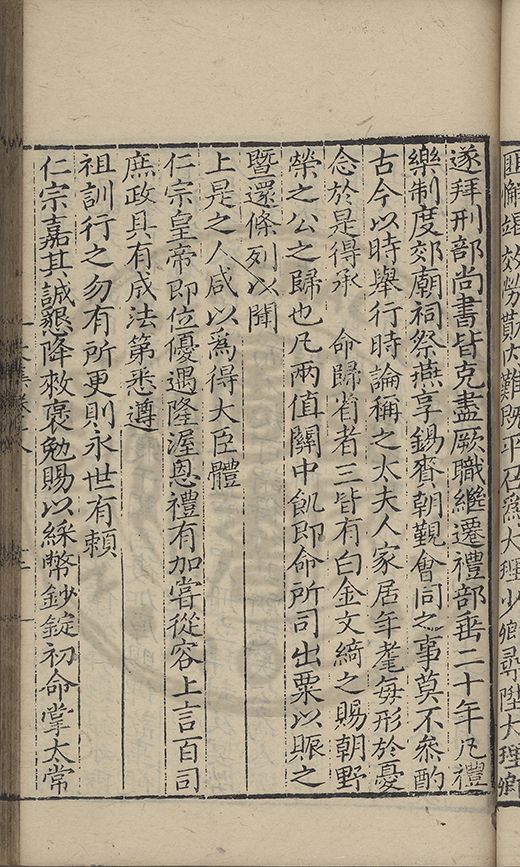 匪懈竭效勞勩內難既平召爲大理少卿尋陞大理卿
遂拜刑部尚書皆克盡厥職繼遷禮部垂二十年凡禮
樂制度郊廟祠祭燕享錫賚朝覲會同之事莫不叅酌
古今以時舉行時論稱之太夫人家居年耄每形於憂
念於是得承　命歸省者三皆有白金文綺之賜朝野
榮之公之歸也凡兩值關中飢即命所司出粟以賑之
曁還條列以聞
上是之人咸以爲得大臣體
仁宗皇帝即位優遇隆渥恩禮有加嘗從容上言百司
庶政具有成法第悉遵
祖訓行之勿有所更則永世有賴
仁宗嘉其誠懇降敕褒勉賜以綵幣鈔錠初命掌太常